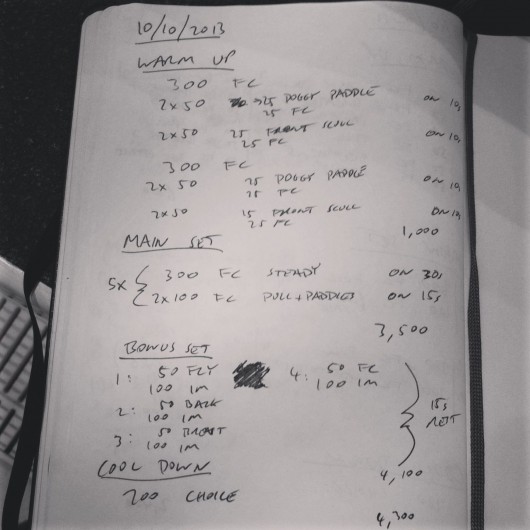 10/10/2013
WARM UP
300 FC
2x50 25 DOGGY PADDLE ON 10s
25 FC
2x50 25 FRONT SCULL ON 10s
25 FC
300 FC
2x 50 25 DOGGY PADDLE ON 10s
25 FC
2x50 25 FRONT SCULL ON 10s
25 FC
1,000
MAIN SET
5x { 300 FC STEADY ON 30s
2x100 FC PULL + PADDLES ON 15s
3,500
BONUS SET
1: 50 FLY 4: 50 FC
100 IM 100 IM
2: 50 BACK
100 IM
3: 50 BREAST
100 IM
15s REST
COOL DOWN
4,100
200 CHOICE
4,300